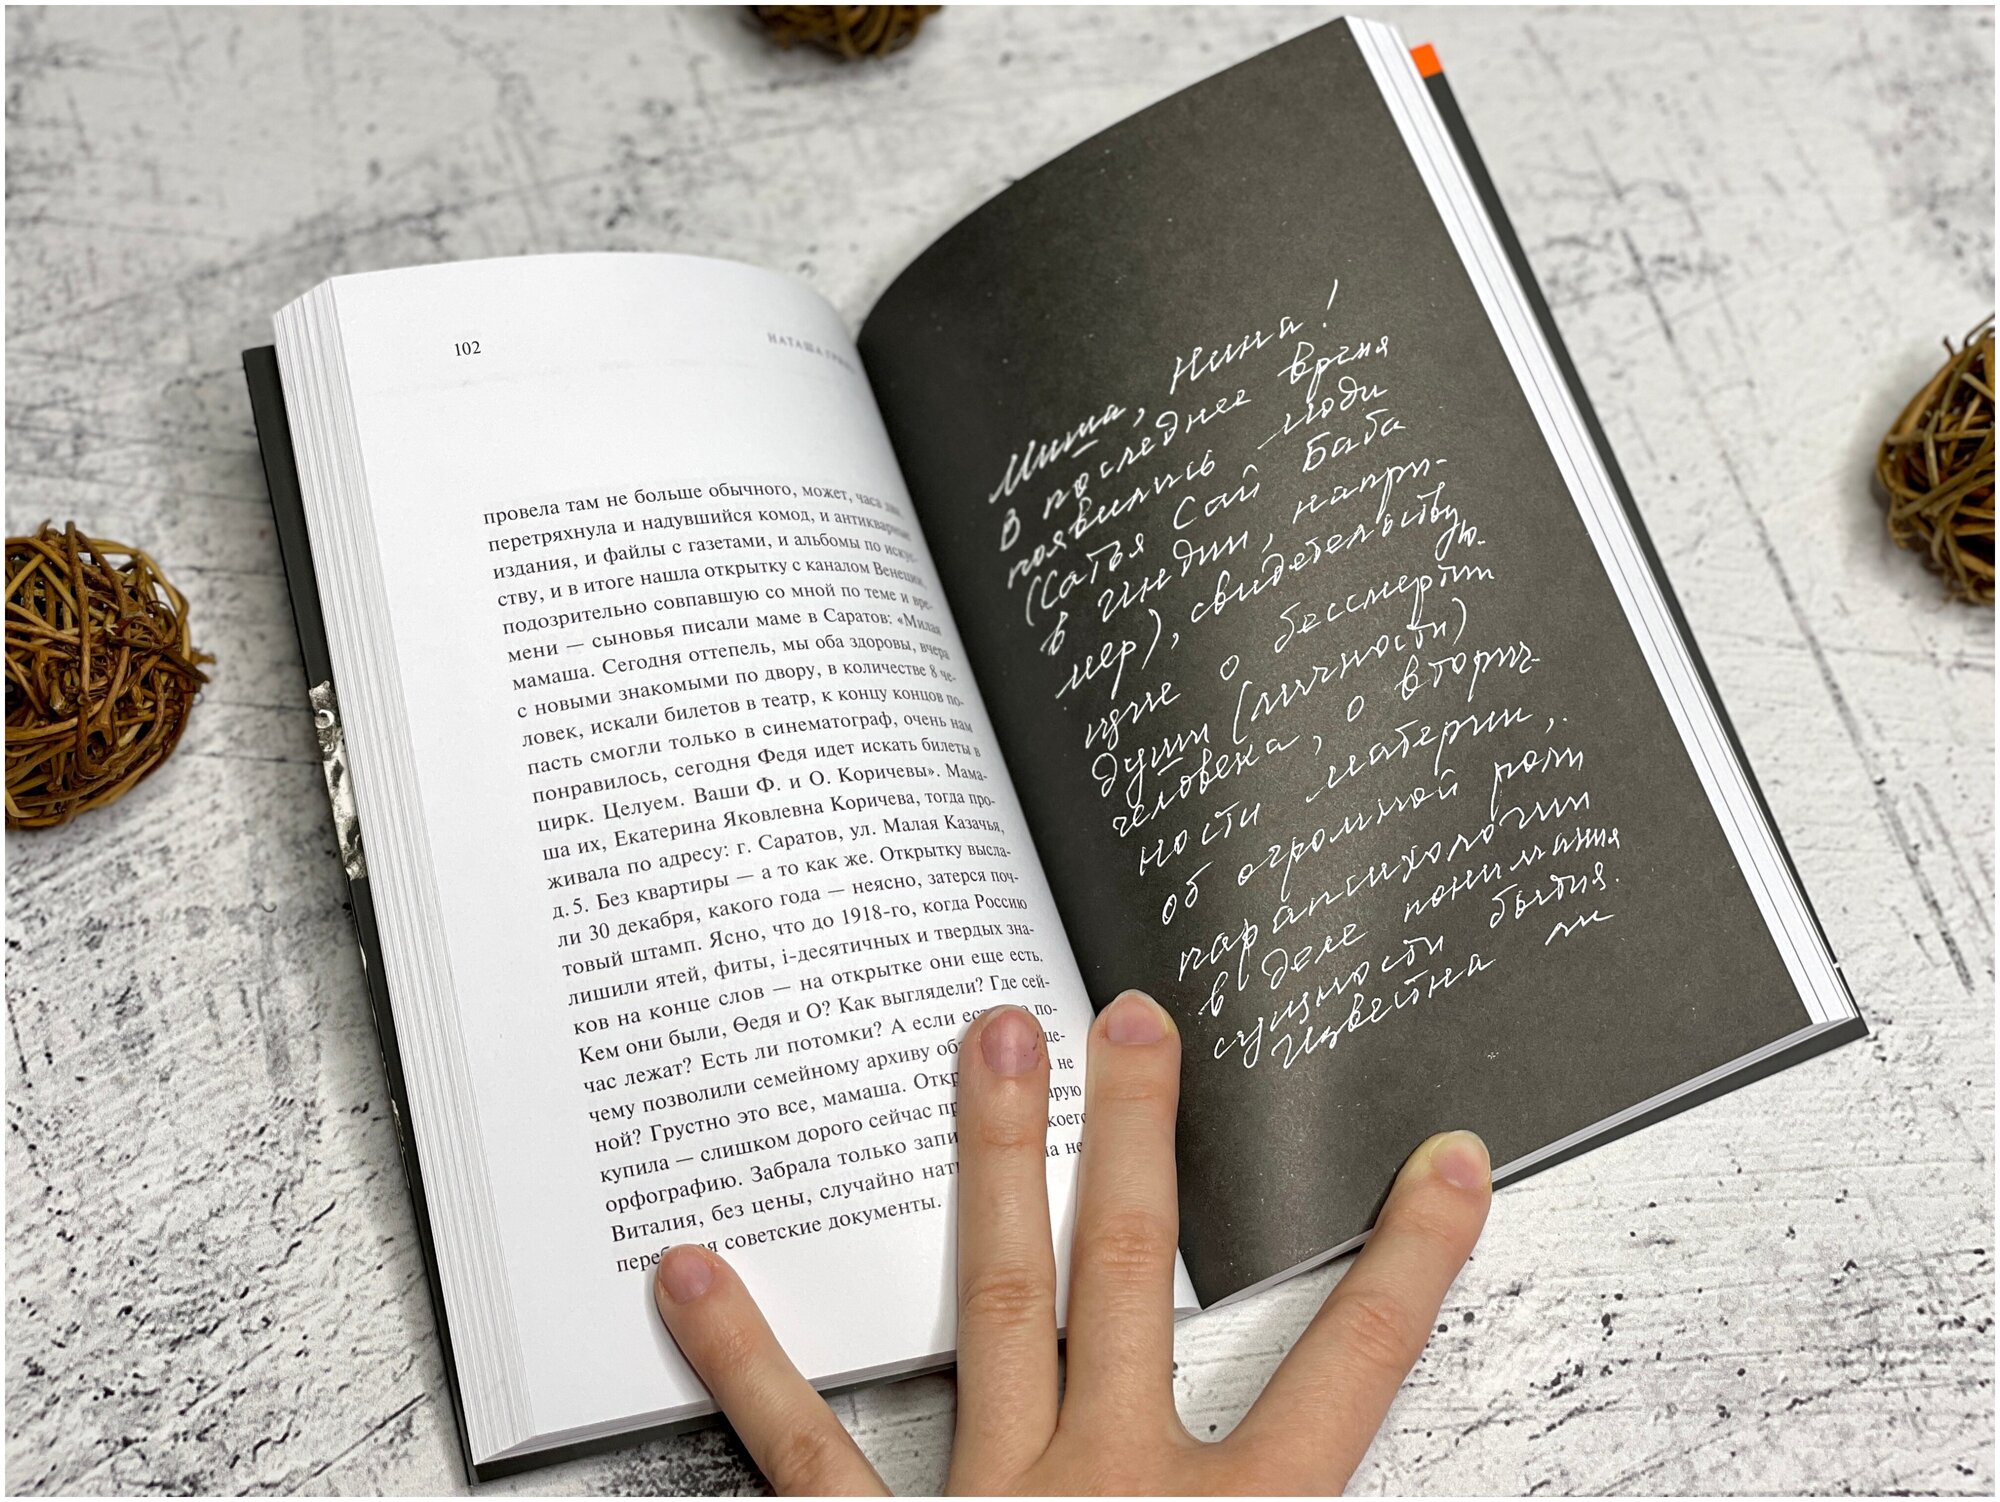 102
НАТАША
провела там не больше обычного, может, часа два,
перетряхнула и надувшийся комод, и антикварные
издания, и файлы с газетами, и альбомы по искус-
ству, и в итоге нашла открытку с каналом Венеции,
подозрительно совпавшую со мной по теме и вре-
мени — сыновья писали маме в Саратов: «Милая
мамаша. Сегодня оттепель, мы оба здоровы, вчера
с новыми знакомыми по двору, в количестве 8 че-
ловек, искали билетов в театр, к концу концов по-
пасть смогли только в синематограф, очень нам
понравилось, сегодня Федя идет искать билеты в
цирк. Целуем. Ваши Ф. и О. Коричевы». Мама-
ша их, Екатерина Яковлевна Коричева, тогда про-
живала по адресу: г. Саратов, ул. Малая Казачья,
д. 5. Без квартиры — а то как же. Открытку высла-
ли 30 декабря, какого года — неясно, затерся поч-
товый штамп. Ясно, что до 1918-го, когда Россию
лишили ятей, фиты, i-десятичных и твердых зна-
ков на конце слов — на открытке они еще есть.
Кем они были, Ѳедя и О? Как выглядели? Где сей-
час лежат? Есть ли потомки? А если по-
чему позволили семейному архиву
ной? Грустно это все, мамаша. не
купила — слишком дорого сейчас
орфографию. Забрала только
Виталия, без цены, случайно не
советские документы.
Миша, Нина!
В последнее время
появились люди
(Сатья Сай Баба
в Индии, напри-
мер), свидетельству-
ющие о бессмертии
души (личности)
человека, о вторич-
ности материи,
об огромной роли
парапсихологии
в деле понимания
сущности бытия.
Известна ли